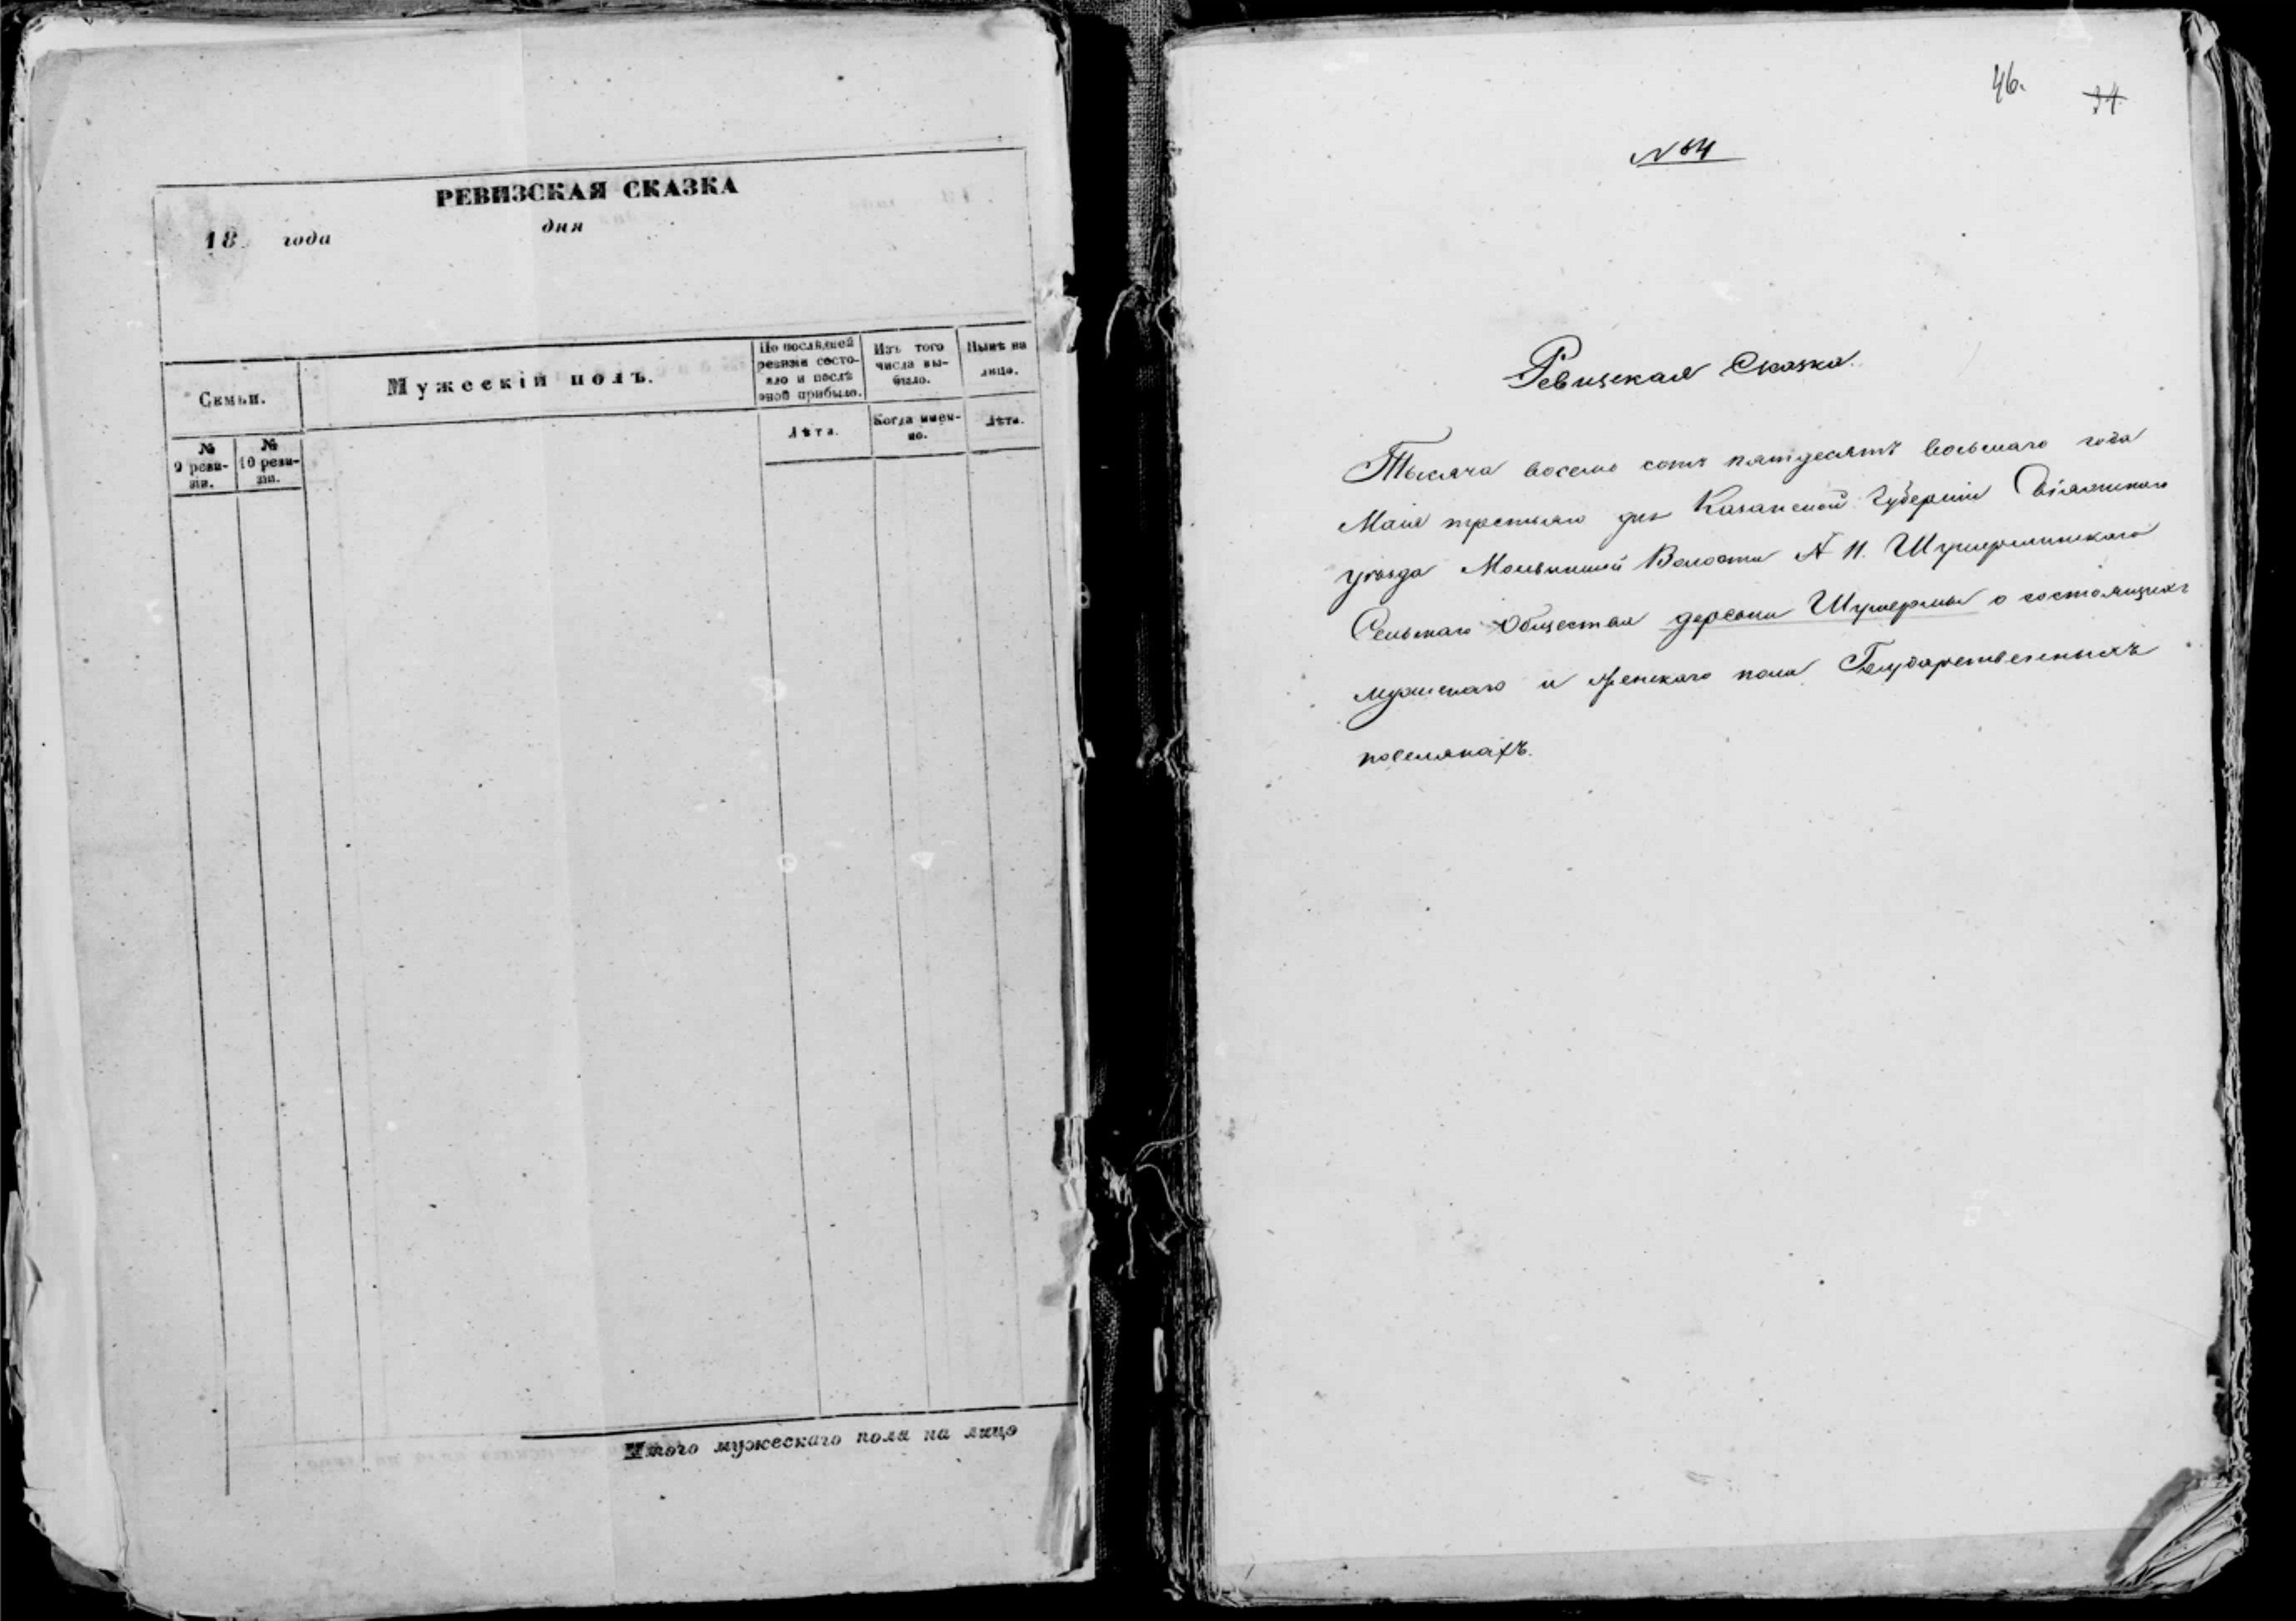 РЕВИЗСКАЯ СКАЗКА
18 года дня
Семьи.
Мужескій полъ.
По послѣдней
ревизіи состо-
яло и послѣ
оной прибыло.
Изъ того
числа вы-
было.
Нынѣ на
лицо.
№
9 реви-
зіи.
№
10 реви-
зіи.
Лѣта.
Когда имен-
но.
Лѣта.
Итого мужескаго пола на лицо
46. 34
№ 64
Ревизская Сказка.
Тысяча восемь сотъ пятдесятъ восьмаго года
Маія третьяго дня Казанской Губерніи Свіяжскаго
уѣзда Волости № 11. Шушерминскаго
Сельскаго Общества деревни Шушермы о состоящихъ
мужескаго и женскаго пола Государственныхъ
поселянахъ.